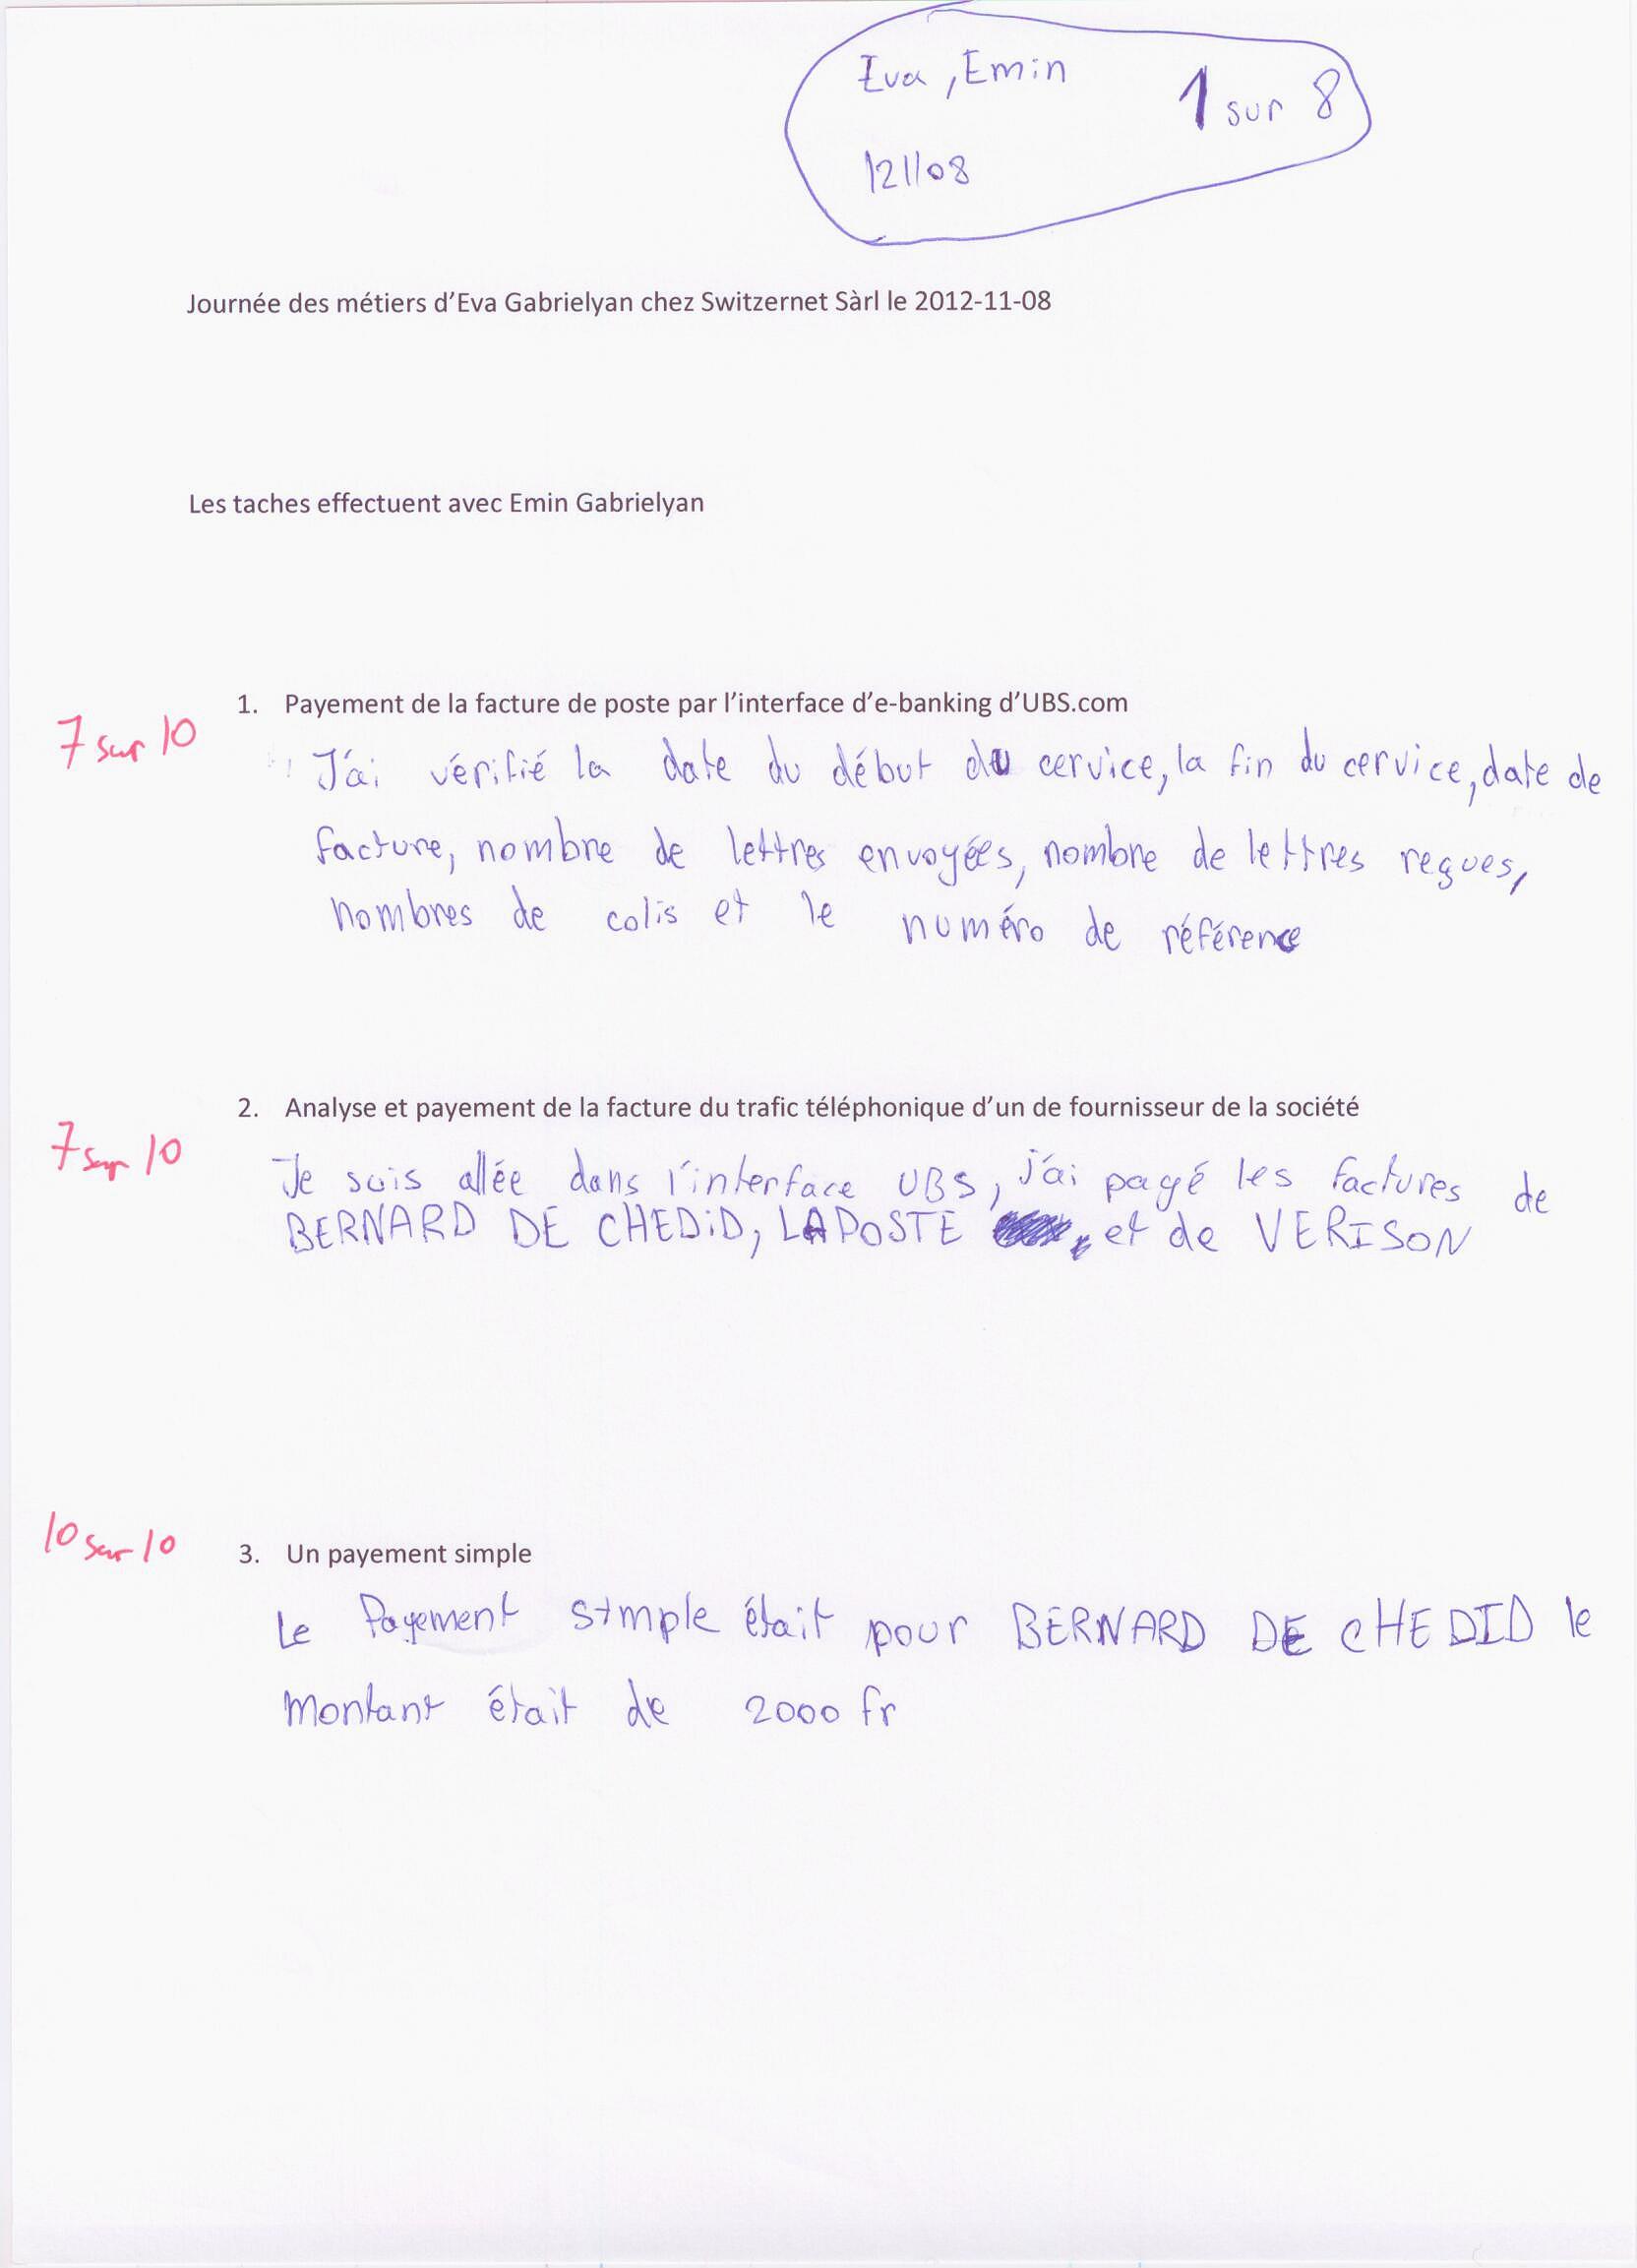 Eva, Emin 1 sur 8
121108
Journée des métiers d'Eva Gabrielyan chez Switzernet Sàrl le 2012-11-08
Les taches effectuent avec Emin Gabrielyan
7 sur 10
1. Payement de la facture de poste par l'interface d'e-banking d'UBS.com
J'ai vérifié la date du début du cervice, la fin du cervice, date de
facture, nombre de lettres envoyées, nombre de lettres reçues,
nombres de colis et le numéro de référence
7 sur 10
2. Analyse et payement de la facture du trafic téléphonique d'un de fournisseur de la société
Je suis allée dans l'interface UBS, j'ai payé les factures de
BERNARD DE CHEDiD, LAPOSTE, et de VERISON
10 sur 10
3. Un payement simple
Le Payement simple était pour BERNARD DE CHEDID le
montant était de 2000 fr